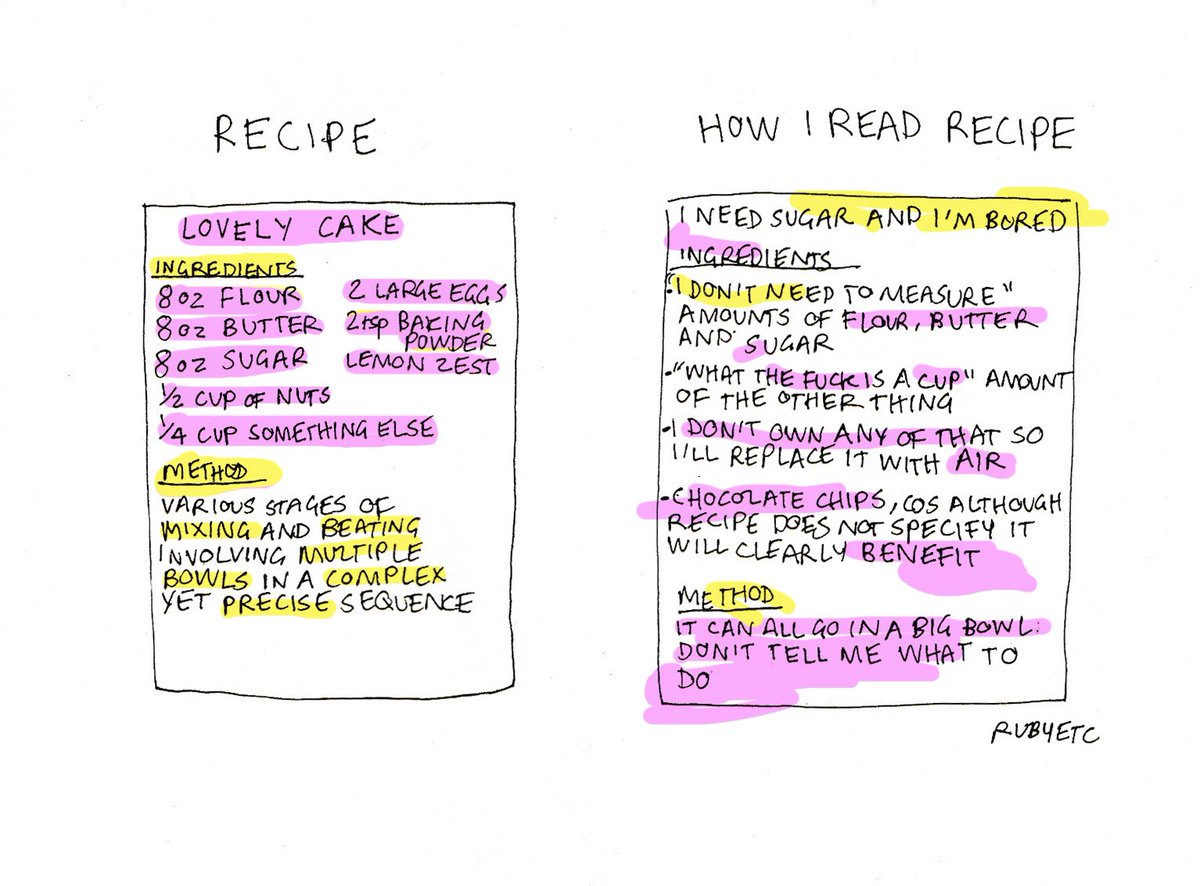 RECIPE
LOVELY CAKE
INGREDIENTS
8oz FLOUR
8oz BUTTER
8oz SUGAR
1/2 CUP OF NUTS
1/4 CUP SOMETHING ELSE
2 LARGE EGGS
2tsp BAKING
POWDER
LEMON ZEST
METHOD
VARIOUS STAGES OF
MIXING AND BEATING
INVOLVING MULTIPLE
BOWLS IN A COMPLEX
YET PRECISE SEQUENCE
HOW I READ RECIPE
I NEED SUGAR AND I'M BORED
INGREDIENTS
•"I DON'T NEED TO MEASURE"
AMOUNTS OF FLOUR, BUTTER
AND SUGAR
•"WHAT THE FUCK IS A CUP" AMOUNT
OF THE OTHER THING
•I DON'T OWN ANY OF THAT SO
I'LL REPLACE IT WITH AIR
•CHOCOLATE CHIPS, COS ALTHOUGH
RECIPE DOES NOT SPECIFY IT
WILL CLEARLY BENEFIT
METHOD
IT CAN ALL GO IN A BIG BOWL.
DON'T TELL ME WHAT TO
DO
RUBYETC